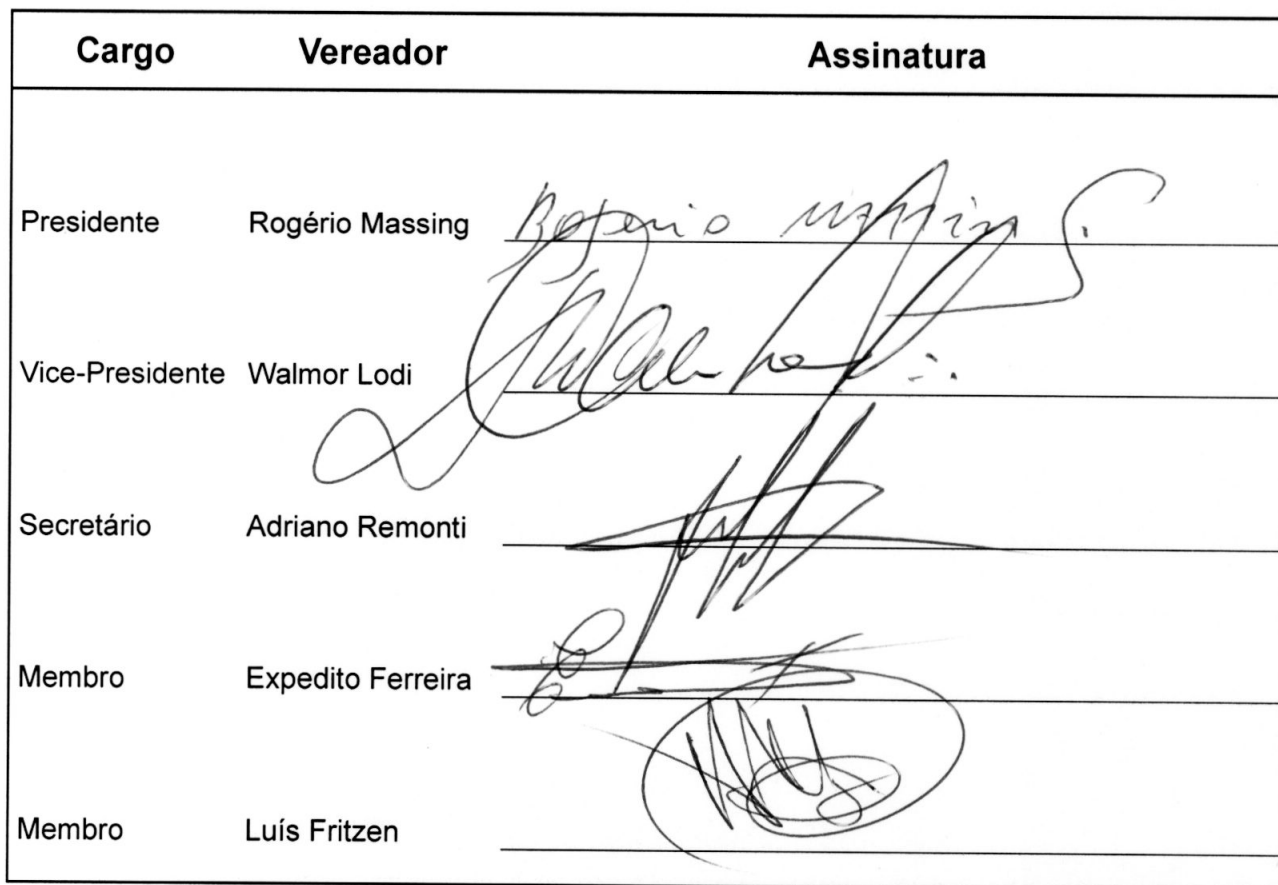 Cargo Vereador Assinatura
Presidente Rogério Massing Rogerio Massing
Vice-Presidente Walmor Lodi Walmor Lodi
Secretário Adriano Remonti
Membro Expedito Ferreira
Membro Luís Fritzen